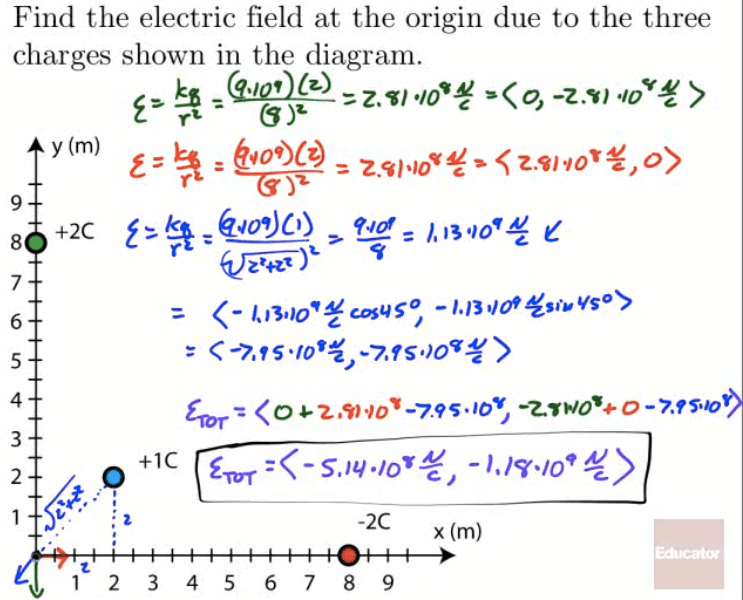 Find the electric field at the origin due to the three
charges shown in the diagram.
ε = kq/r² = (9·10⁹)(2)/(8)² = 2.81·10⁸ N/C = <0, -2.81·10⁸ N/C>
y (m)
ε = kq/r² = (9·10⁹)(2)/(8)² = 2.81·10⁸ N/C = <2.81·10⁸ N/C, 0>
9
+2C
8
ε = kq/r² = (9·10⁹)(1)/(√2²+2²)² = 9·10⁹/8 = 1.13·10⁹ N/C ↙
7
= <-1.13·10⁹ N/C cos45°, -1.13·10⁹ N/C sin45°>
6
= <-7.95·10⁸ N/C, -7.95·10⁸ N/C>
5
4
ε_TOT = <0+2.81·10⁸-7.95·10⁸, -2.81·10⁸+0-7.95·10⁸>
3
+1C
ε_TOT = <-5.14·10⁸ N/C, -1.18·10⁹ N/C>
2
√2²+2²
1
2
-2C
x (m)
Educator
2
1 2 3 4 5 6 7 8 9